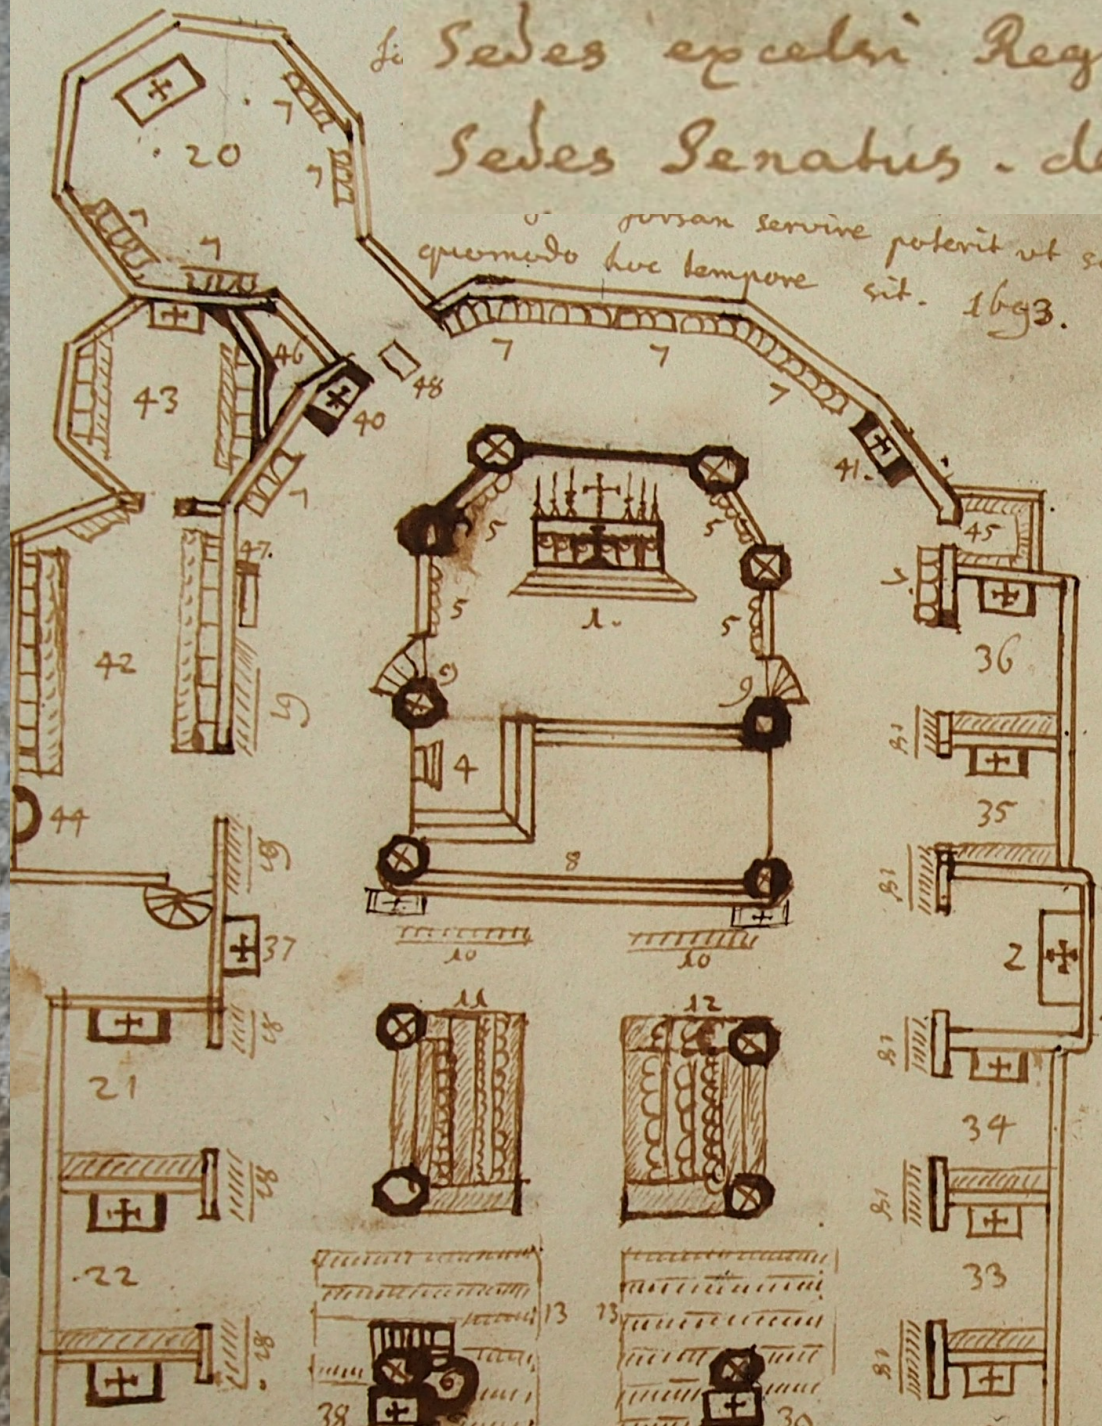 Sedes excelsi Reg
Sedes Senatus. de
forsan servire poterit ut
quomodo hoc tempore sit. 1693.
7
20
7
7
7
46
48
43
40
7
7
7
41.
7
5
5
45
47.
1.
5
5
7
36
42
19
9
9
18
4
35
44
19
8
18
37
10
10
2
11
12
18
18
21
34
18
18
22
33
13
13
18
18
6
38
39